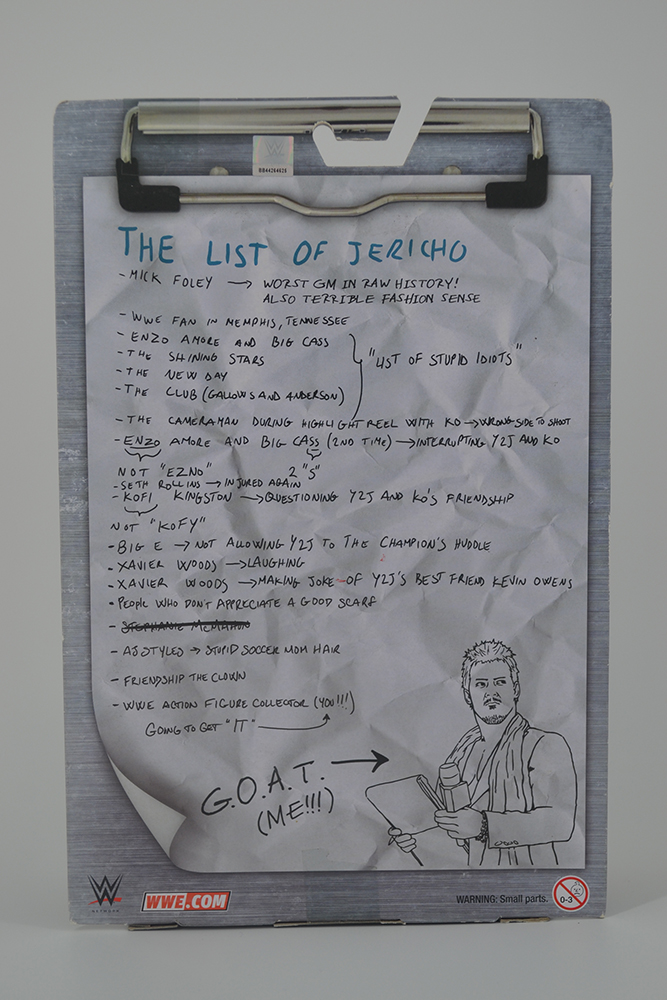 W
BB44264626
THE LIST OF JERICHO
- MICK FOLEY → WORST GM IN RAW HISTORY!
ALSO TERRIBLE FASHION SENSE
- WWE FAN IN MEMPHIS, TENNESSEE
- ENZO AMORE AND BIG CASS
- THE SHINING STARS
"LIST OF STUPID IDIOTS"
- THE NEW DAY
- THE CLUB (GALLOWS AND ANDERSON)
- THE CAMERAMAN DURING HIGHLIGHT REEL WITH KO → WRONG SIDE TO SHOOT
- ENZO AMORE AND BIG CASS (2ND TIME) → INTERRUPTING Y2J AND KO
NOT "EZNO" 2 "S"
- SETH ROLLINS → INJURED AGAIN
- KOFI KINGSTON → QUESTIONING Y2J AND KO'S FRIENDSHIP
NOT "KOFY"
- BIG E → NOT ALLOWING Y2J TO THE CHAMPION'S HUDDLE
- XAVIER WOODS → LAUGHING
- XAVIER WOODS → MAKING JOKE OF Y2J'S BEST FRIEND KEVIN OWENS
- PEOPLE WHO DON'T APPRECIATE A GOOD SCARF
- STEPHANIE McMAHON
- AJ STYLES → STUPID SOCCER MOM HAIR
- FRIENDSHIP THE CLOWN
- WWE ACTION FIGURE COLLECTOR (YOU!!!)
GOING TO GET "IT"
G.O.A.T. →
(ME!!!)
W
NETWORK
WWE.COM
WARNING: Small parts.
0-3